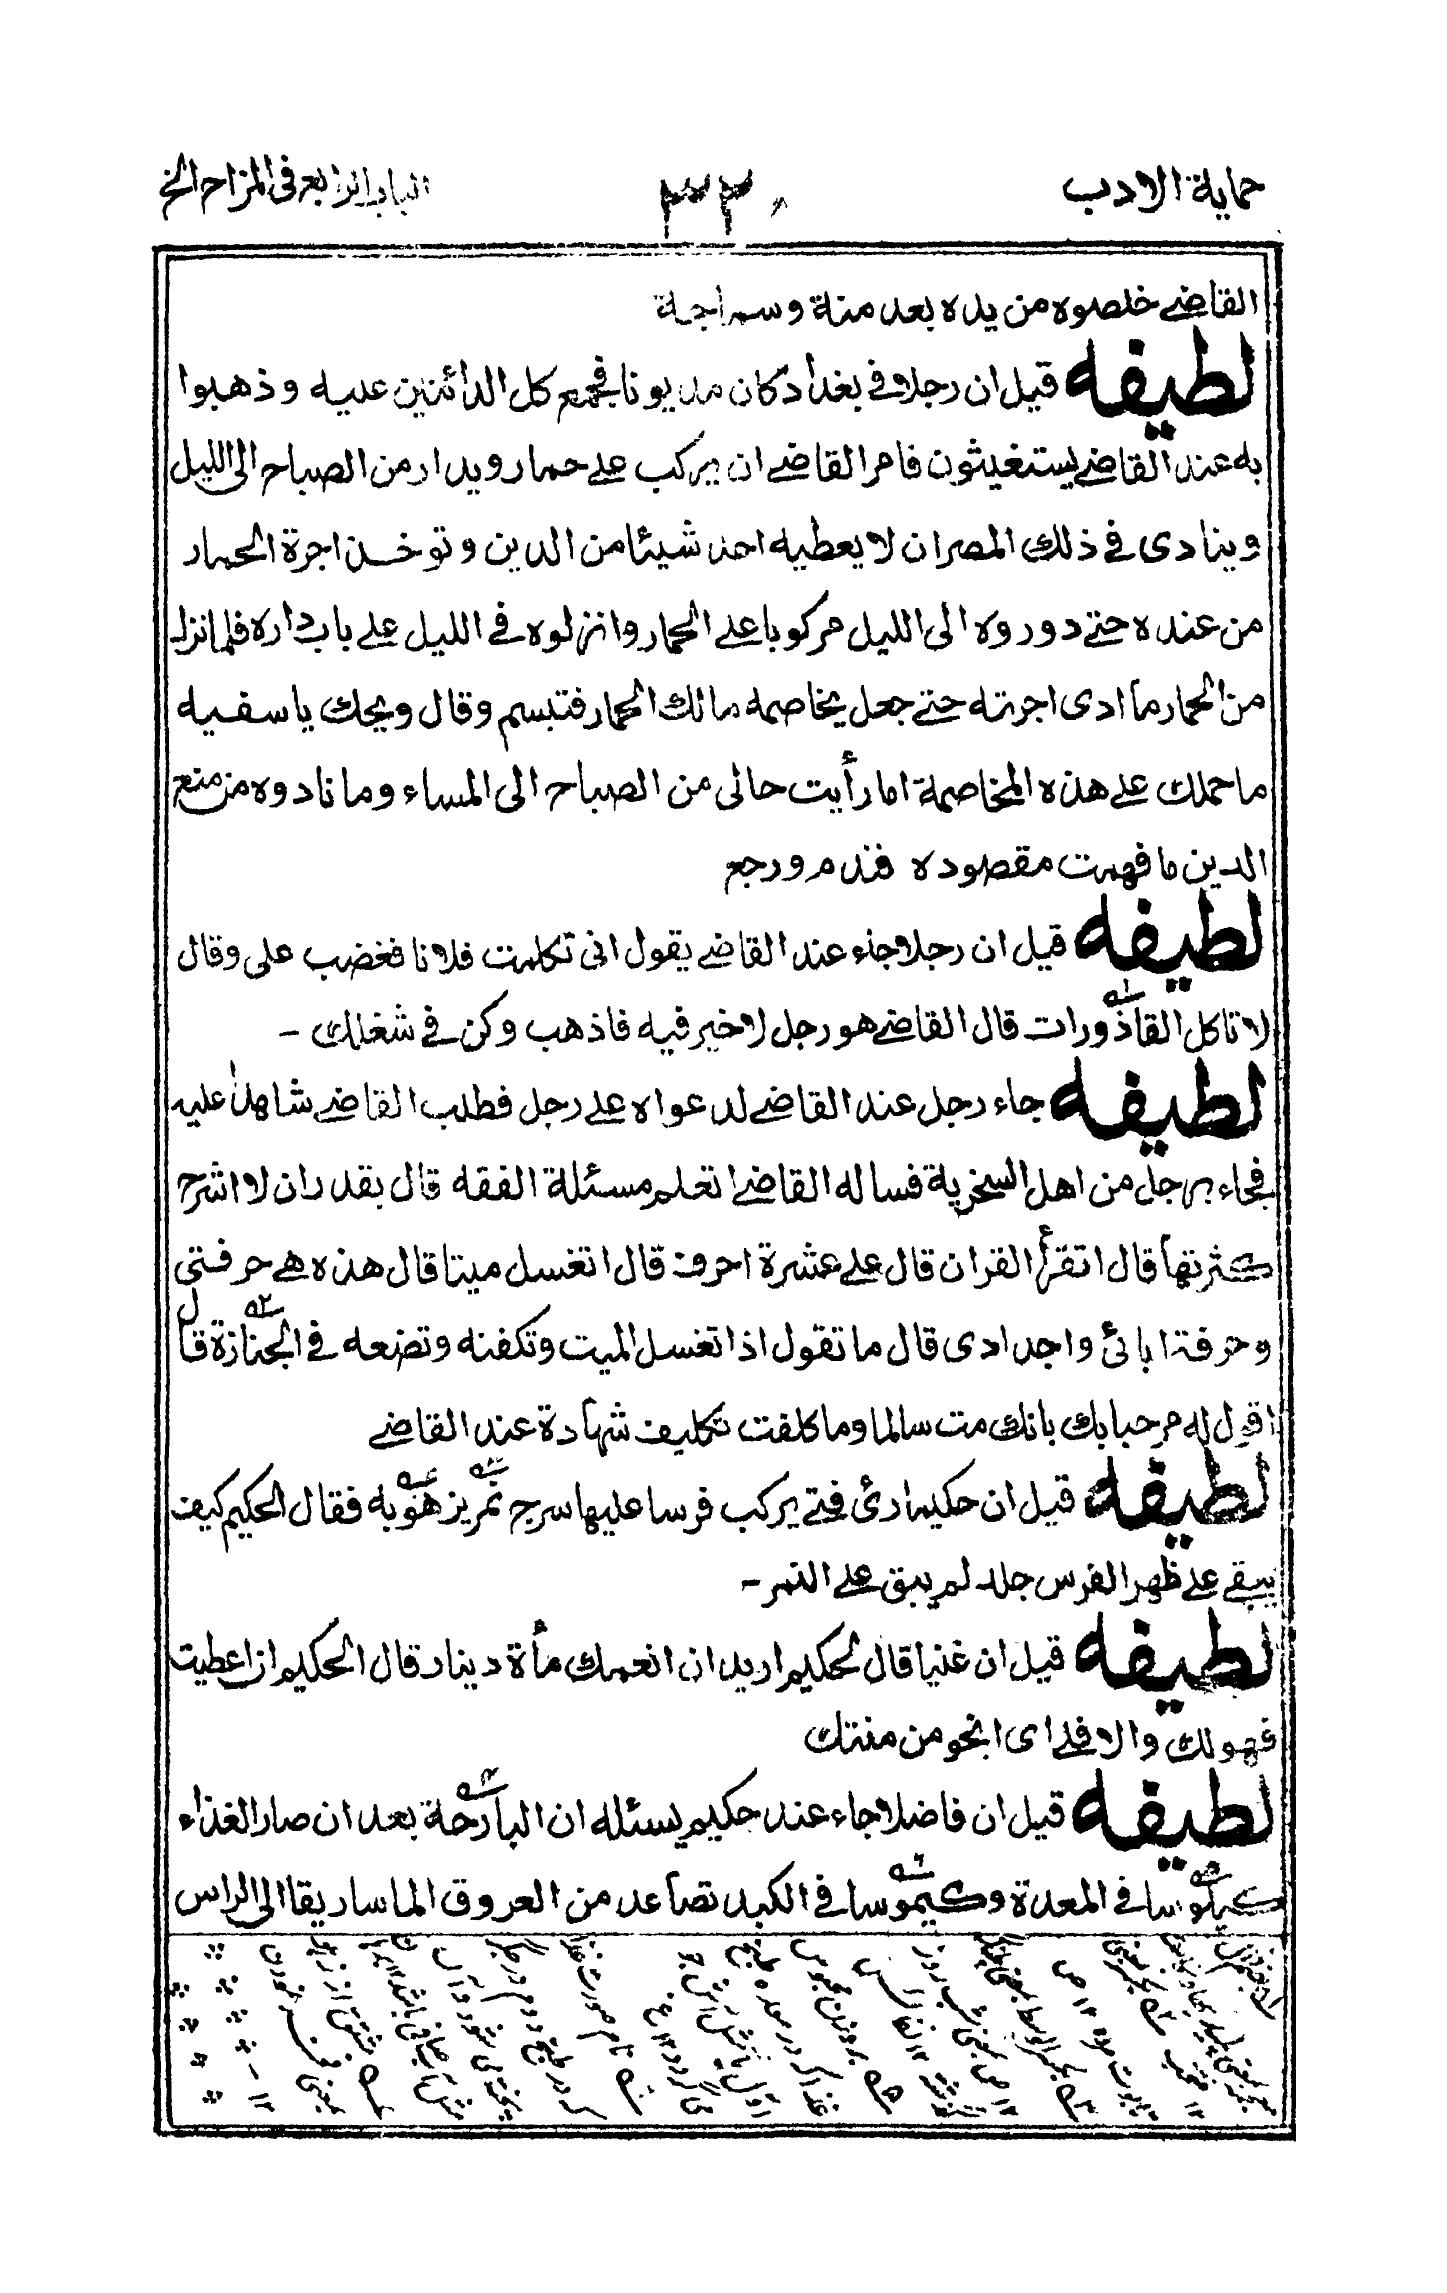 حماية الادب
٣٣٠
الباب الرابع فى المزاح الخ
القاضے خلصوه من يده بعد منة وسماجة
لطيفه قيل ان رجلا فے بغداد كان مديونا فجمع كل الدائنين عليه وذهبوا
به عند القاضے يستغيثون فامر القاضے ان يركب علے حمار ويدار من الصباح الى الليل
وينادى فے ذلك المصر ان لا يعطيه احد شيئا من الدين وتوخذ اجرة الحمار
من عنده حتے دوروه الى الليل مركوبا علے الحمار وانزلوه فے الليل علے باب داره فلما نزل
من الحمار ما ادى اجرته حتے جعل يخاصمه مالك الحمار فتبسم وقال ويحك يا سفيه
ما حملك علے هذه المخاصمة اما رأيت حالى من الصباح الى المساء وما نادوه من منع
الدين ما فهمت مقصوده فندم ورجع
لطيفه قيل ان رجلا جاء عند القاضے يقول انى تكلمت فلانا فغضب على وقال
لا تاكل القاذورات قال القاضے هو رجل لا خير فيه فاذهب وكن فے شغلك -
لطيفه جاء رجل عند القاضے لدعواه علے رجل فطلب القاضے شاهدا عليه
فجاء برجل من اهل السخرية فساله القاضے اتعلم مسئلة الفقه قال بقدر ان لا اشرح
كثرتها قال اتقرأ القران قال علے عشرة احرف قال اتغسل ميتا قال هذه هے حرفتى
وحرفة ابائى واجدادى قال ما تقول اذا تغسل الميت وتكفنه وتضعه فے الجنازة قال
اقول له مرحبا بك بانك مت سالما وما كلفت تكليف شهادة عند القاضے
لطيفه قيل ان حكيما رئ فتے يركب فرسا عليها سرج نمر يزهو به فقال الحكيم كيف
يبقے علے ظهر الفرس جلد لم يبق علے النمر -
لطيفه قيل ان غنيا قال لحكيم اريد ان انعمك مأة دينار قال الحكيم ان اعطيت
فهو لك والا فلے اى انجو من منتك
لطيفه قيل ان فاضلا جاء عند حكيم يسئله ان البارحة بعد ان صار الغذاء
كيلوسا فے المعدة وكيموسا فے الكبد تصاعد من العروق الماساريقا الى الراس